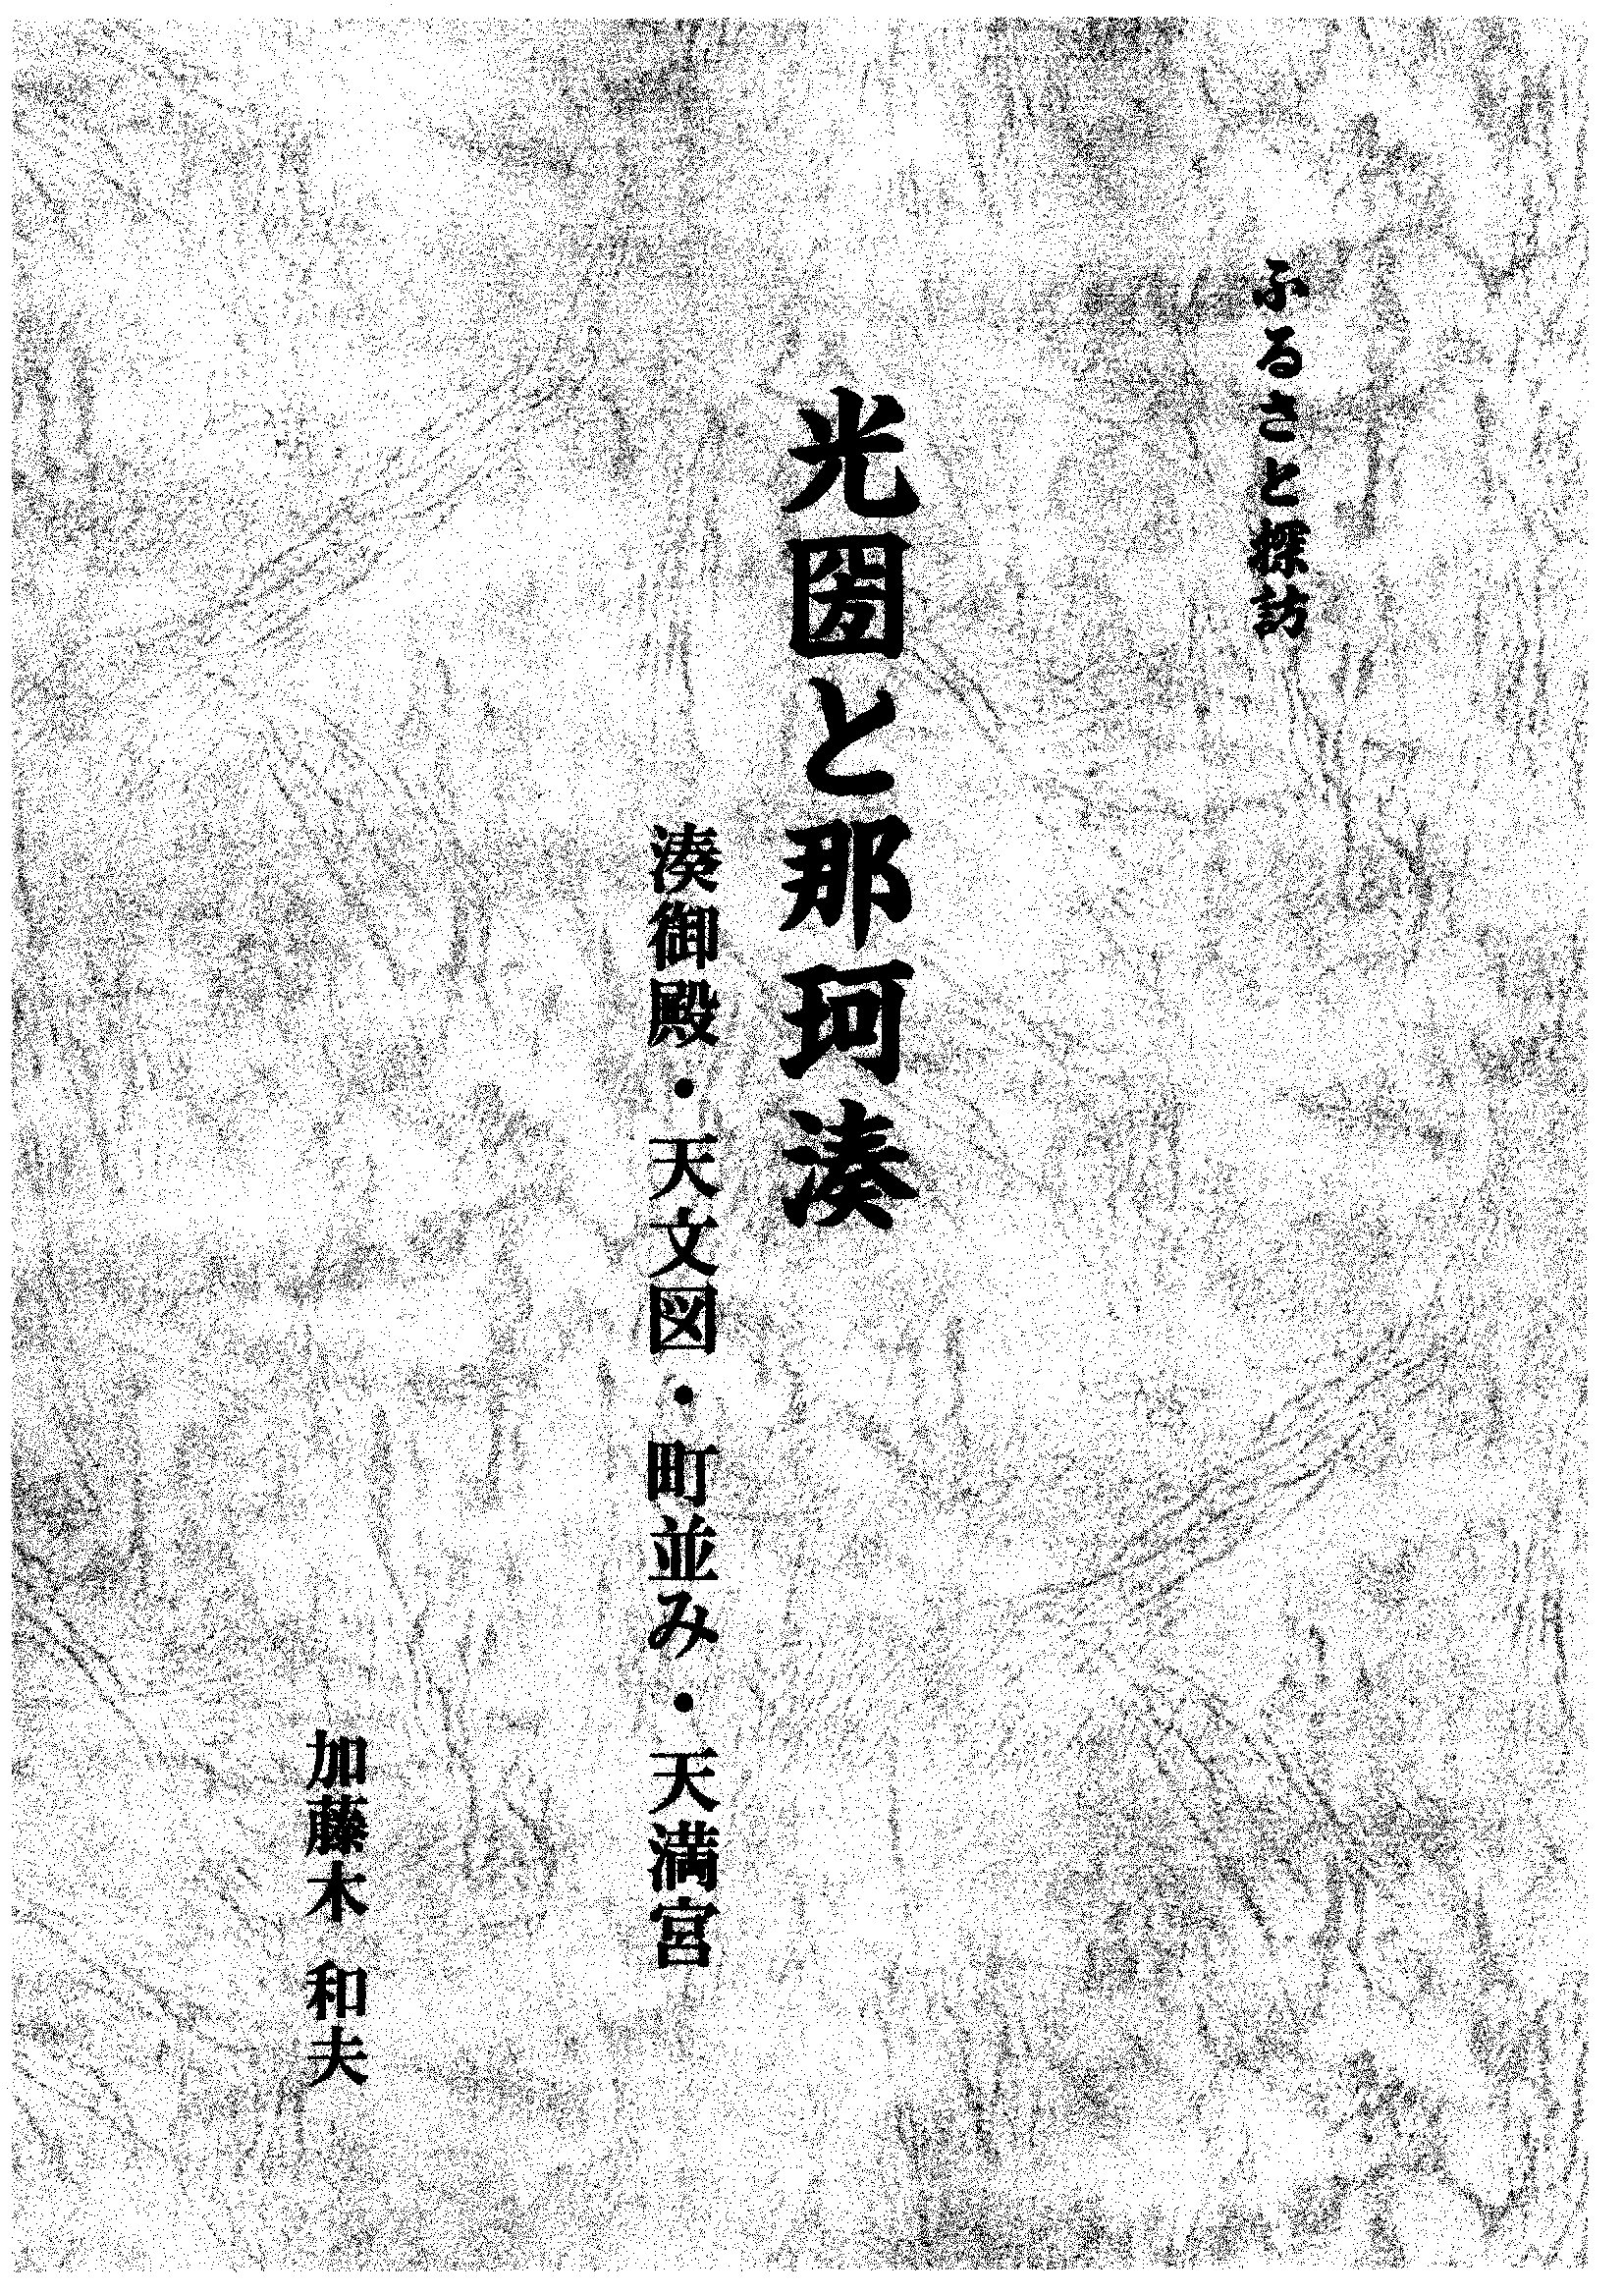 ふるさと探訪
光圀と那珂湊
湊御殿・天文図・町並み・天満宮
加藤木 和夫